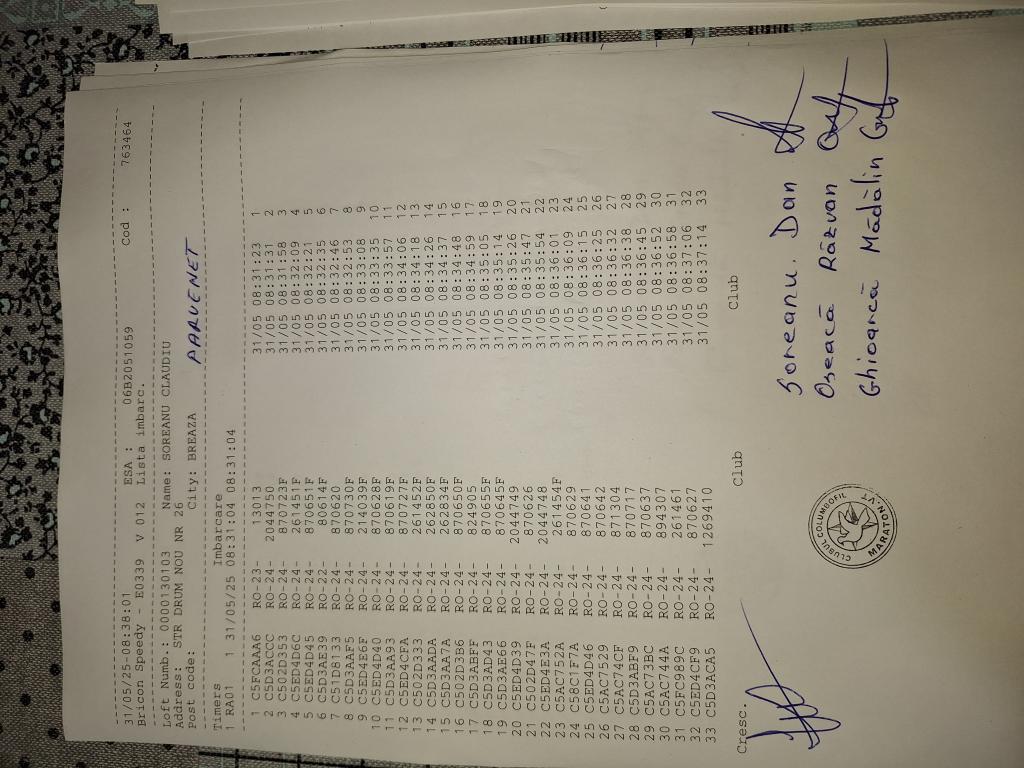 31/05/25-08:38:01 ESA : 06B2051059 Cod : 763464
Bricon Speedy E0339 V 012 Lista imbarc.
Loft Numb.: 0000130103 Name: SOREANU CLAUDIU
Address: STR DRUM NOU NR 26
Post code: City: BREAZA PARVENET
Timers Imbarcare
1 RA01 1 31/05/25 08:31:04 08:31:04
1 C5FCAAA6 RO-23- 13013 31/05 08:31:23 1
2 C5D3ACCC RO-24- 2044750 31/05 08:31:31 2
3 C502D353 RO-24- 870723F 31/05 08:31:58 3
4 C5ED4D6C RO-24- 261451F 31/05 08:32:09 4
5 C5ED4D45 RO-24- 870651F 31/05 08:32:21 5
6 C5D3AE39 RO-22- 80614F 31/05 08:32:35 6
7 C51DB133 RO-24- 870620 31/05 08:32:46 7
8 C5D3AAF5 RO-24- 870730F 31/05 08:32:53 8
9 C5ED4E6F RO-24- 214039F 31/05 08:33:08 9
10 C5ED4D40 RO-24- 870628F 31/05 08:33:35 10
11 C5D3AA93 RO-24- 870619F 31/05 08:33:57 11
12 C5ED4CFA RO-24- 870727F 31/05 08:34:06 12
13 C502D333 RO-24- 261457F 31/05 08:34:18 13
14 C5D3AADA RO-24- 262850F 31/05 08:34:26 14
15 C5D3AA7A RO-24- 262834F 31/05 08:34:37 15
16 C502D3B6 RO-24- 870650F 31/05 08:34:48 16
17 C5D3ABFF RO-24- 824905 31/05 08:34:59 17
18 C5D3AD43 RO-24- 870655F 31/05 08:35:05 18
19 C5D3AE66 RO-24- 870645F 31/05 08:35:14 19
20 C5ED4D39 RO-24- 2044749 31/05 08:35:26 20
21 C502D47F RO-24- 870626 31/05 08:35:47 21
22 C5ED4E3A RO-24- 2044748 31/05 08:35:54 22
23 C5AC752A RO-24- 261454F 31/05 08:36:01 23
24 C58C1F7A RO-24- 870629 31/05 08:36:09 24
25 C5ED4D46 RO-24- 870641 31/05 08:36:15 25
26 C5AC7529 RO-24- 870642 31/05 08:36:25 26
27 C5AC74CF RO-24- 871304 31/05 08:36:32 27
28 C5D3ABF9 RO-24- 870717 31/05 08:36:38 28
29 C5AC73BC RO-24- 870637 31/05 08:36:45 29
30 C5AC744A RO-24- 894307 31/05 08:36:52 30
31 C5FC989C RO-24- 261461 31/05 08:36:58 31
32 C5ED4CF9 RO-24- 870627 31/05 08:37:06 32
33 C5D3ACA5 RO-24- 1269410 31/05 08:37:14 33
Cresc. Club Club
Soreanu. Dan
Oseacă Răzvan
Ghioarcă Mădălin
CLUBUL COLUMBOFIL
MARATON.VT